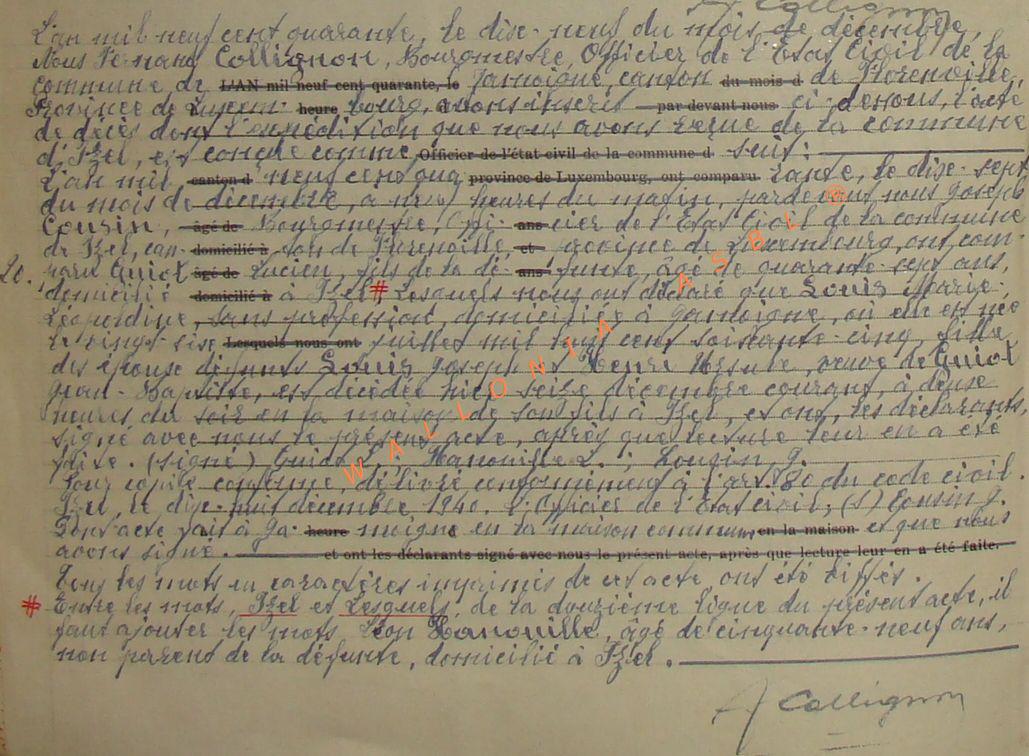 Collignon
L'an mil neuf cent quarante, le dix-neuf du mois de décembre,
Nous Fernand Collignon, Bourgmestre, Officier de l'Etat Civil de la
commune de L'AN mil neuf cent quarante, le Jamoigne, canton du mois d de Florenville,
Province de Luxem- heure bourg, avons inscrit par devant nous ci-dessous, l'acte
de décès dont l'expédition que nous avons reçue de la commune
d'Izel, est conçue comme Officier de l'état civil de la commune d suit:
L'an mil canton d neuf cent qua province de Luxembourg, ont comparu rante, le dix-sept
du mois de décembre, à neuf heures du matin, pardevant nous Joseph
Cousin, âgé de Bourgmestre, Offi- ans cier de l'Etat Civil de la commune
de Izel, can- domicilié à ton de Florenville, et province de Luxembourg, ont com-
paru Guiot âgé de Lucien, fils de la dé- ans funte, âgé de quarante-sept ans,
domicilié domicilié à à Izel # Lesquels nous ont déclaré que Louis Marie
Léopoldine, sans profession, domiciliée à Jamoigne, où elle est née
le vingt-six Lesquels nous ont juillet mil huit cent soixante-cinq, fille
des époux défunts Louis Joseph et Henri Ursule, veuve de Guiot
Jean-Baptiste, est décédée hier seize décembre courant, à deux
heures du soir en la maison de son fils à Izel, et ont, les déclarants,
signé avec nous le présent acte, après que lecture leur en a été
faite. (signé) Guiot L.; Hanouille L.; Cousin, J.
Pour copie conforme, délivré conformément à l'art. 80 du code civil.
Izel, le dix-huit décembre 1940. L'Officier de l'Etat civil, (s) Cousin J.
Dont acte fait à Ja- heure moigne en la maison commune en la maison et que nous
avons signé. et ont les déclarants signé avec nous le présent acte, après que lecture leur en a été faite.
Tous les mots en caractères imprimés de cet acte ont été biffés.
# Entre les mots, Izel et Lesquels, de la douzième ligne du présent acte, il
faut ajouter les mots Léon Hanouille, âgé de cinquante-neuf ans,
non parent de la défunte, domicilié à Izel.
Collignon
WALLONIA ASBL @